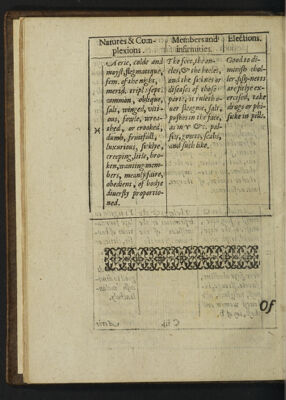 Natures & Com-
plexions.
Members and
infirmities.
Elections.
Aerie, colde and
moyst, flegmatique,
fem. of the night,
merid. tripl. sept.
common, oblique,
salt, winged, viti-
ous, fowle, wrea-
thed, or crooked,
dumb, fruitfull,
luxurious, sicklye,
creeping, little, bro-
ken, wanting mem-
bers, meanly faire,
obedient, of bodye
diversly proportio-
ned.
♓
The feet, the an-
cles, & the heeles,
and the sicknes or
diseases of those
parts: it ruleth o-
ver flegme, salt,
as in ♈ &c. pal-
seys, gowts, scabs,
and such like.
Good to di-
minish chol-
ler, busynesses
are safelye ex-
ercised, take
drugs or phi-
sicke in pill.
Of